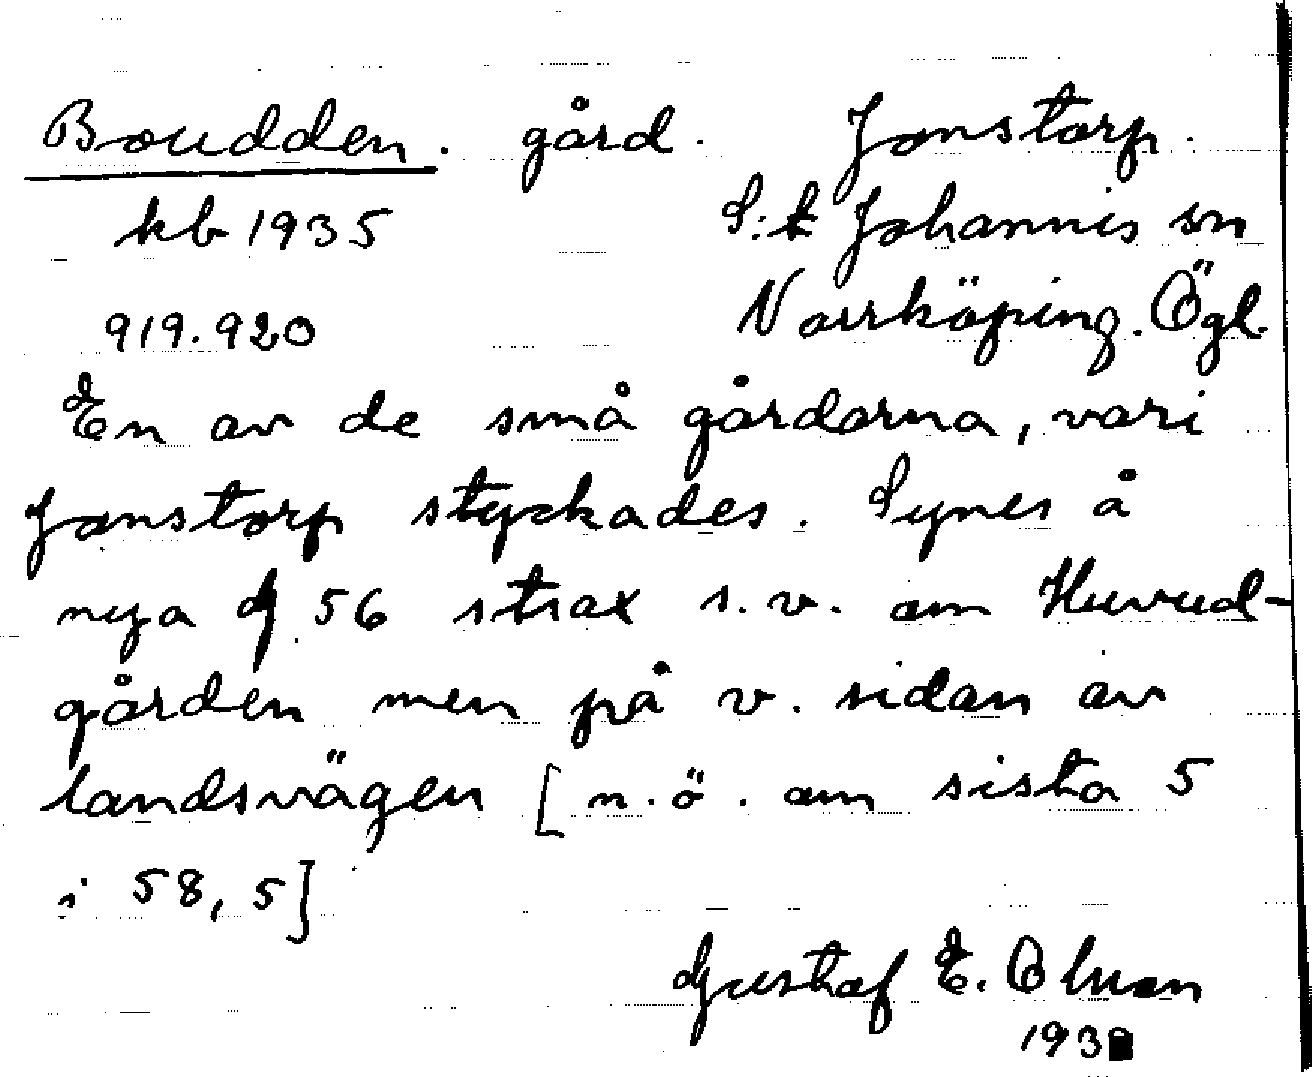 Boudden. gård. Jonstorp.
kb 1935 S:t Johannis sn
919.920 Norrköping. Ögl.
En av de små gårdarna, vari
Jonstorp styckades. Synes å
nya g 56 strax s.v. om Huvud-
gården men på v. sidan av
landsvägen [n.ö. om sista 5
i 58,5]
Gustaf E. Olson